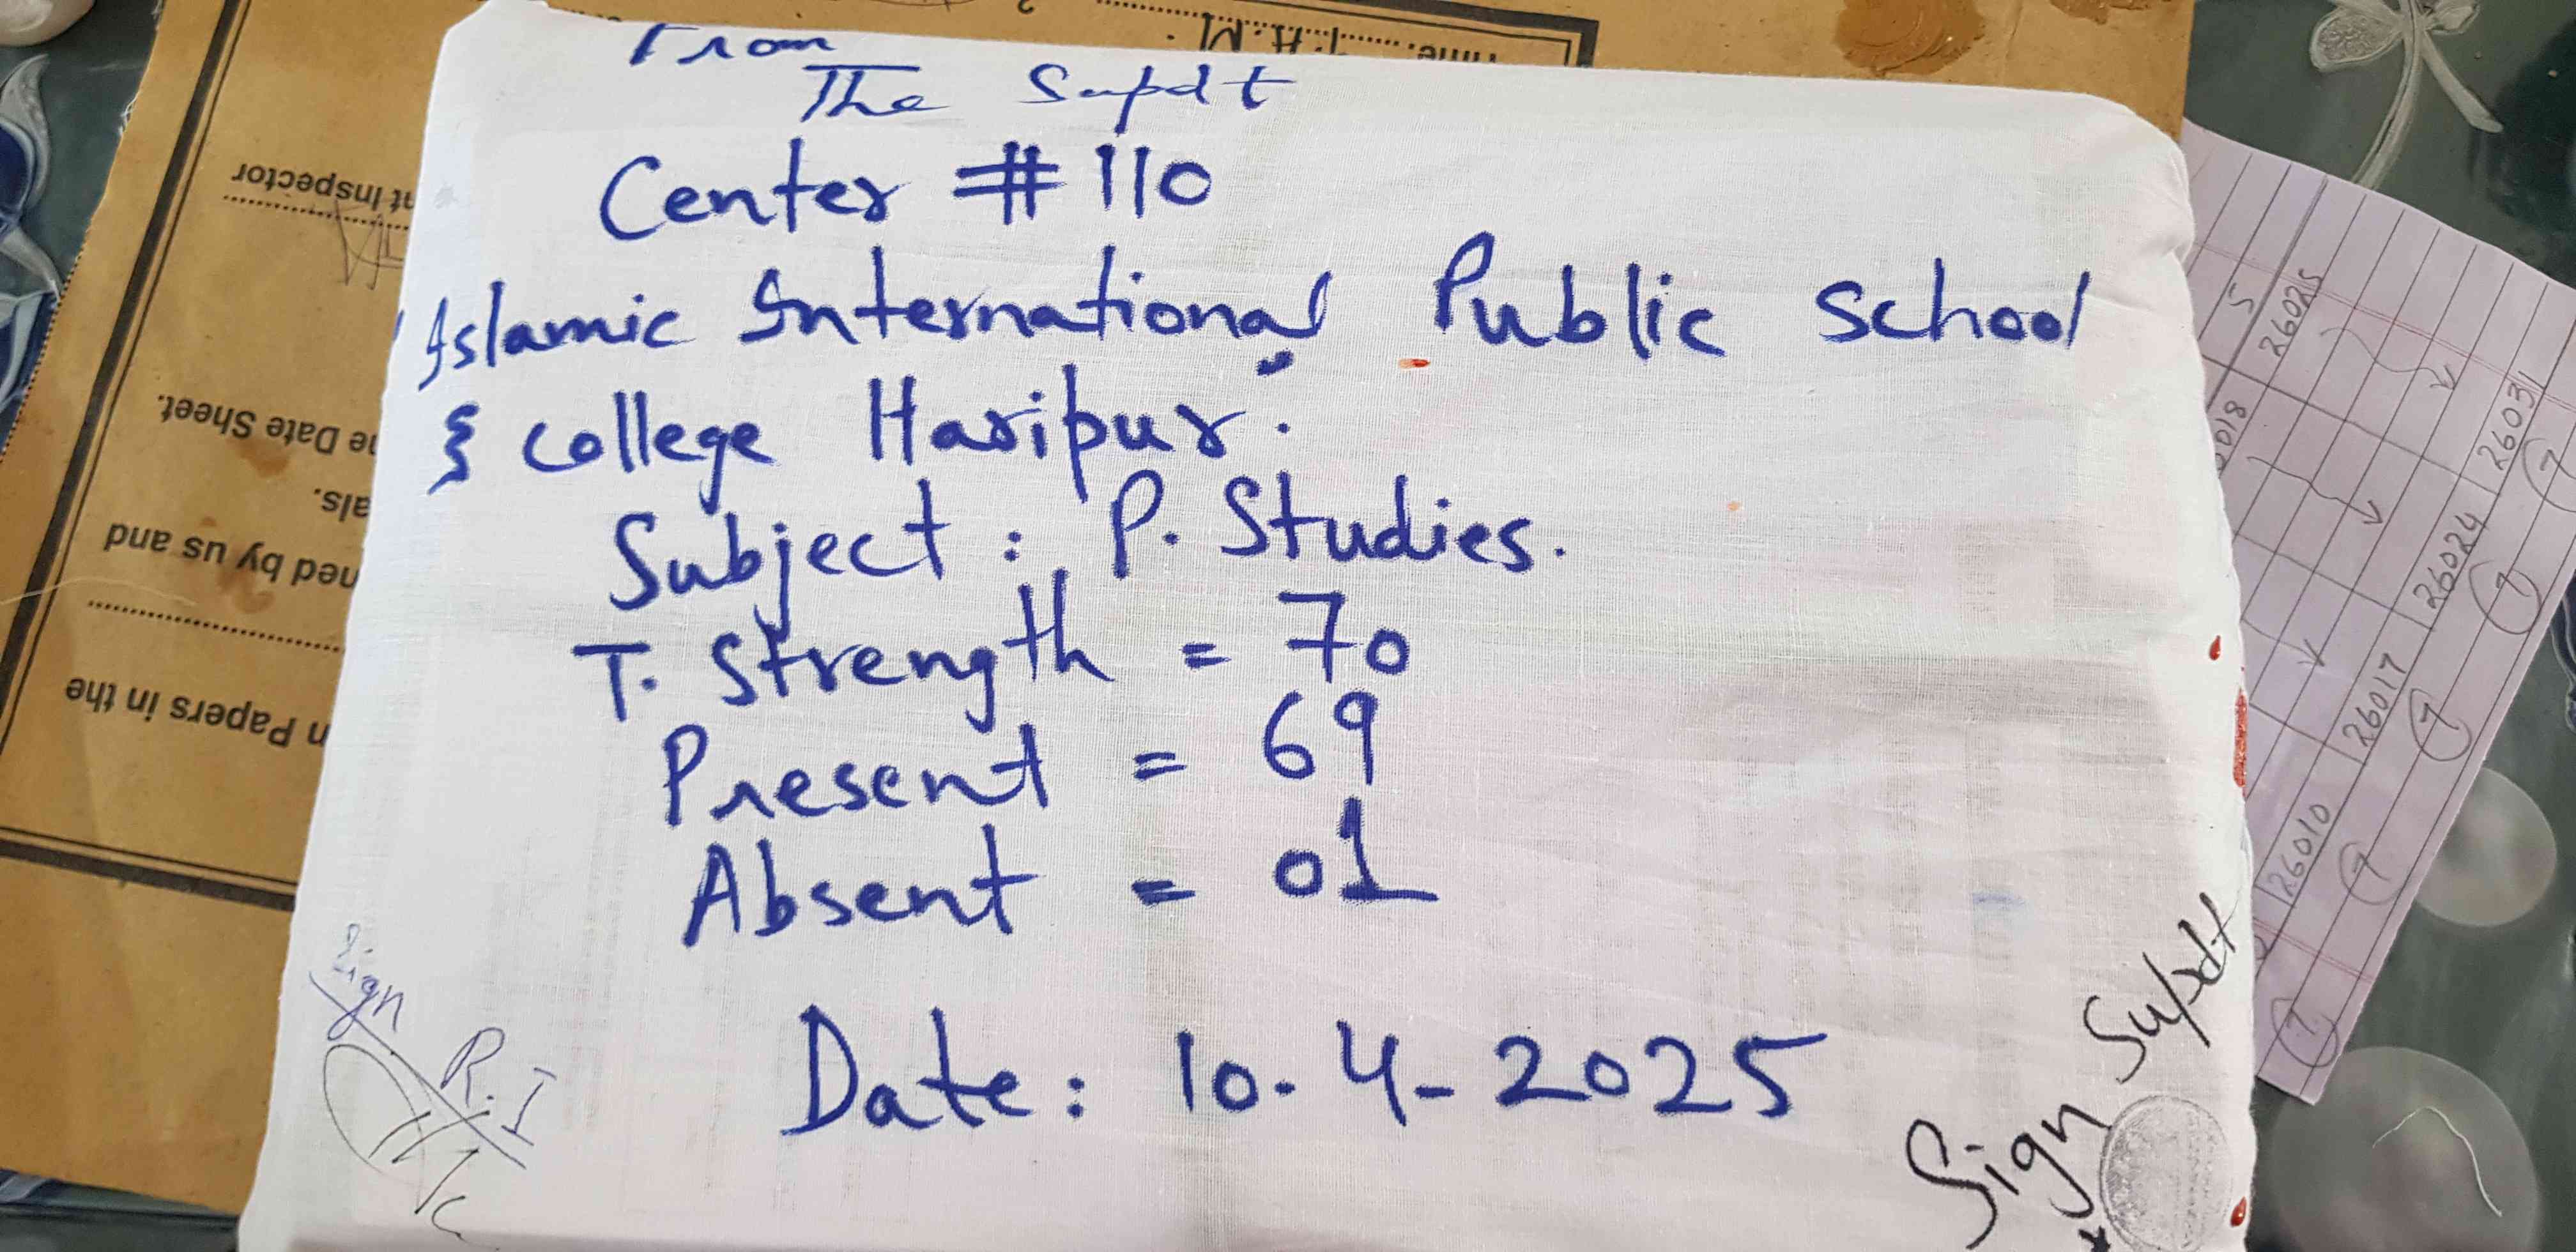 From
The Supdt
Center # 110
Islamic International Public School
& College Haripur.
Subject : P. Studies.
T. Strength = 70
Present = 69
Absent = 01
Date : 10-4-2025
Sign
R.I
Sign Supdt
nt Inspector
ne Date Sheet.
als.
ned by us and
n Papers in the
5
26025
26031
7
2018
26024
7
26017
7
26010
7
7